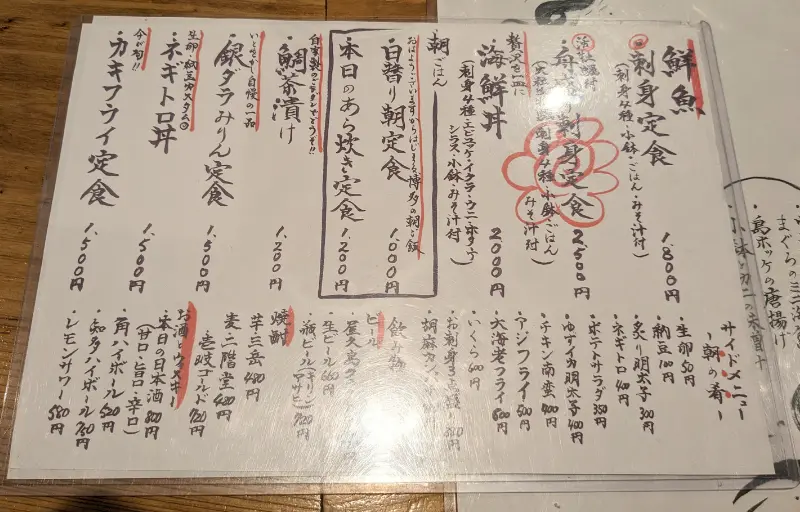 鮮魚
刺身定食
(刺身4種・小鉢・ごはん・みそ汁付)
1,800円
刺身定食
2,500円
みそ汁付)
贅沢を一皿に
海鮮丼
(刺身4種・エビ
イクラ・ウニ・ホタテ
シラス・小鉢・みそ汁付)
2000円
朝ごはん
おはようございますからはじまる博多の朝ご飯
日替り朝定食
1,000円
本日のあら炊き定食
1,200円
自家製のゴマダレでどうぞ!!
鯛茶漬け
1,200円
いとおかし自慢の一品
銀ダラみりん定食
1,500円
ネギトロ丼
1,500円
今が旬!!
カキフライ定食
1,500円
サイドメニュー
ー朝の肴ー
・生卵 50円
・納豆 100円
・炙り明太子 300円
・ネギトロ 400円
・ポテトサラダ 350円
・ゆずイカ明太子 400円
・チキン南蛮 400円
・アジフライ 500円
・大海老フライ 600円
・いくら 600円
・お刺身3点盛
・胡麻カン
飲み物
ビール
・生ビール 660円
・瓶ビール(キリン アサヒ) 720円
焼酎
芋三岳 480円
麦二階堂 480円
壱岐ゴールド 720円
お酒とウイスキー
・本日の日本酒 800円
(甘口・旨口・辛口)
・角ハイボール 520円
・知多ハイボール 750円
・レモンサワー 580円
まぐろの
・島ホッケの唐揚げ